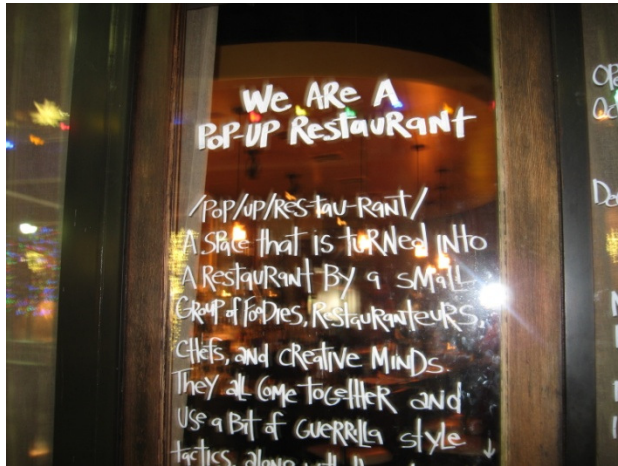 We ARe A
PoP-UP RestauRant
/PoP/up/Res-tau-Rant/
A Space that is tuRNed INto
A RestauRant By a sMall
GRoup of FooDies, RestauRanteuRs,
CHefs, and cReative MiNDs.
They all Come toGetHeR and
Use a Bit of GueRRilla style
tactics, along with